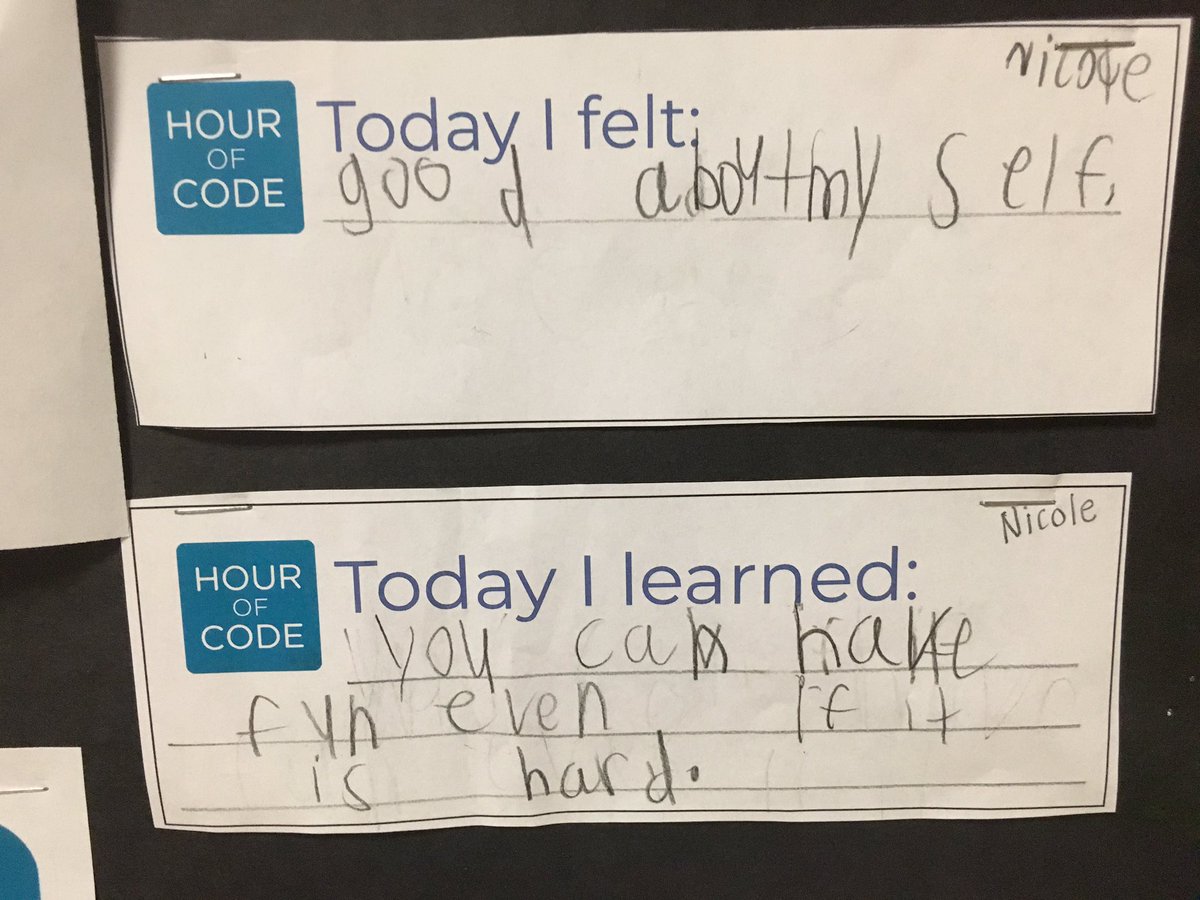 Nicole
HOUR
OF
CODE
Today I felt:
good aboytmy self.
Nicole
HOUR
OF
CODE
Today I learned:
you can have
fyn even if it
is hard.